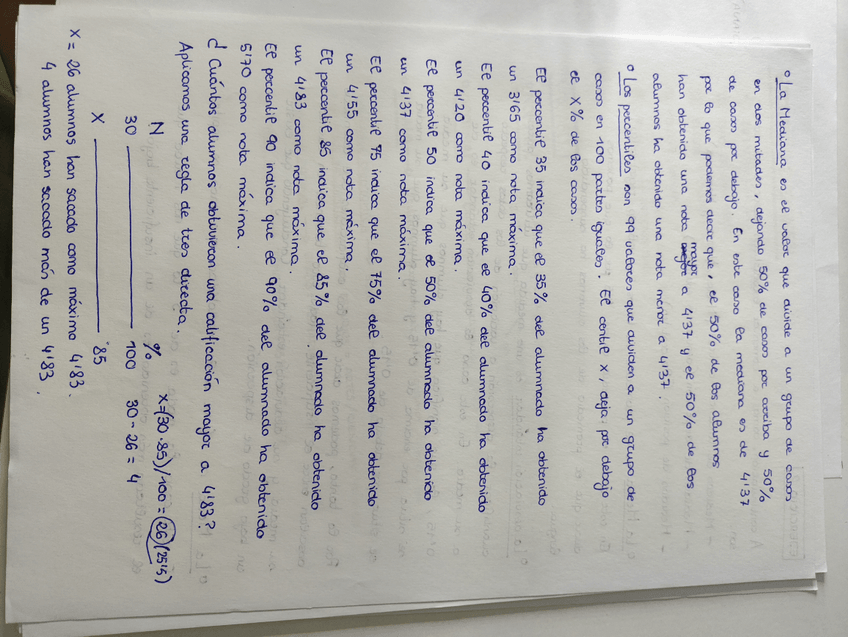 o La Mediana es el valor que divide a un grupo de casos
en dos mitades, dejando 50% de casos por arriba y 50%
de casos por debajo. En este caso la mediana es de 4'37
por lo que podemos decir que, el 50% de los alumnos
han obtenido una nota mayor a 4'37 y el 50% de los
alumnos ha obtenido una nota menor a 4'37.
o Los percentiles son 99 valores que dividen a un grupo de
casos en 100 partes iguales. El centil x, deja por debajo
el X% de los casos.
El percentil 35 indica que el 35% del alumnado ha obtenido
un 3'65 como nota máxima.
El percentil 40 indica que el 40% del alumnado ha obtenido
un 4'20 como nota máxima.
El percentil 50 indica que el 50% del alumnado ha obtenido
un 4'37 como nota máxima.
El percentil 75 indica que el 75% del alumnado ha obtenido
un 4'55 como nota máxima.
El percentil 85 indica que el 85% del alumnado ha obtenido
un 4'83 como nota máxima.
El percentil 90 indica que el 90% del alumnado ha obtenido
5'70 como nota máxima.
d Cuántos alumnos obtuvieron una calificación mayor a 4'83?
Aplicamos una regla de tres directa.
N % X=(30·85)/100 = 26 (25'5)
30 100 30-26 = 4
X 85
X = 26 alumnos han sacado como máximo 4'83.
4 alumnos han sacado más de un 4'83.